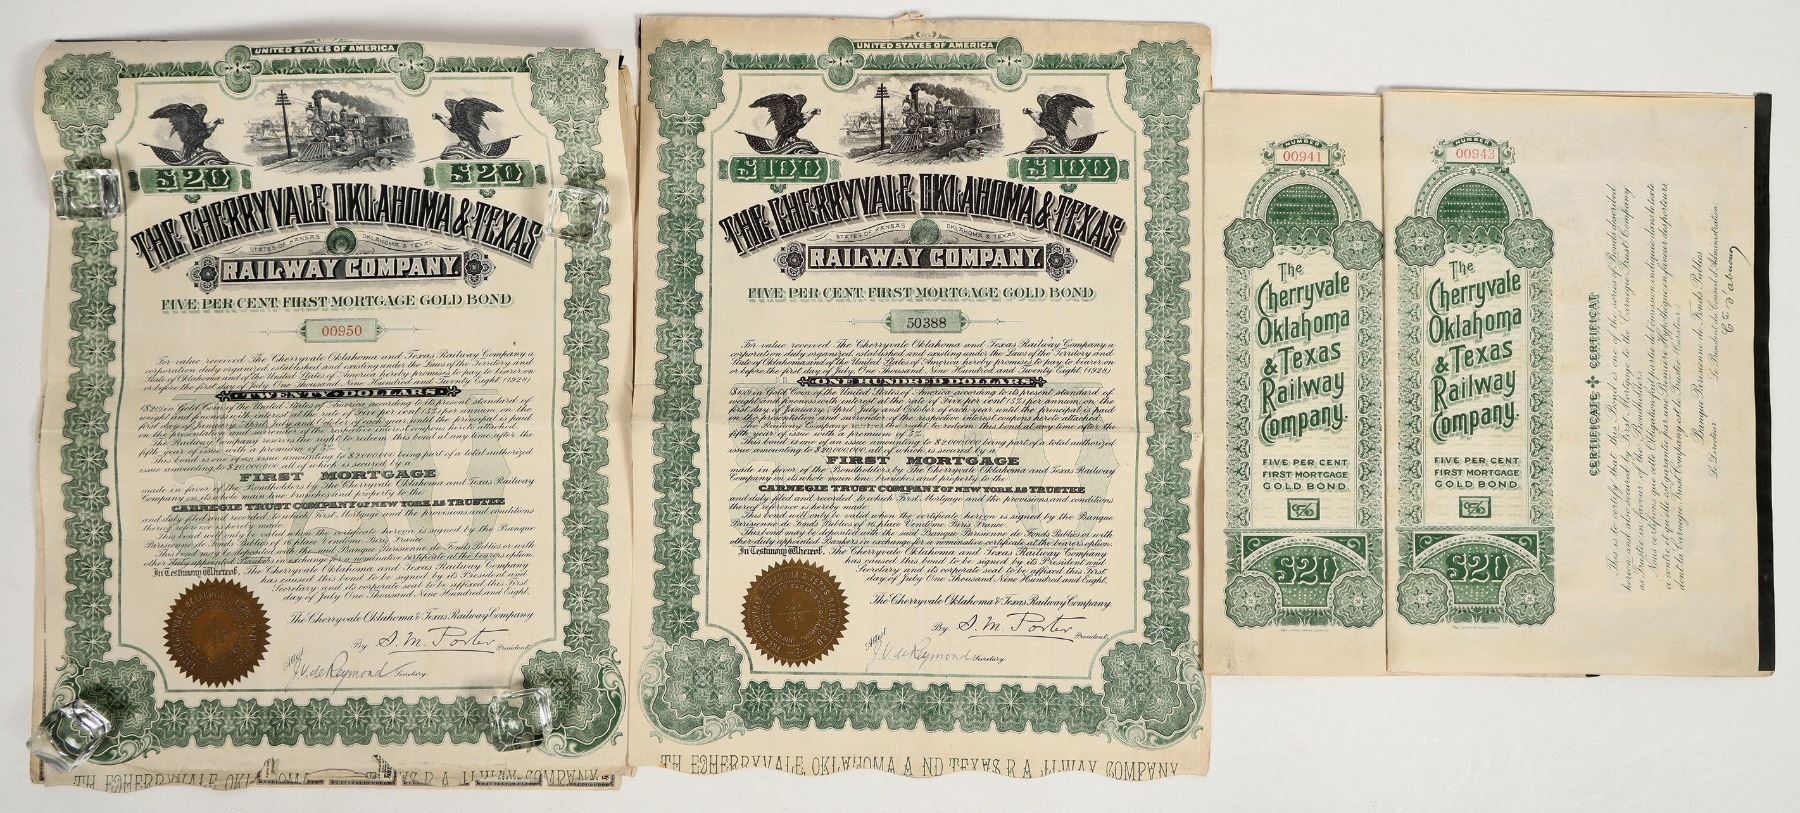 UNITED STATES OF AMERICA
$20 $20
THE CHERRYVALE OKLAHOMA & TEXAS
STATES OF KANSAS OKLAHOMA & TEXAS
RAILWAY COMPANY.
FIVE PER CENT. FIRST MORTGAGE GOLD BOND
00950
For value received The Cherryvale Oklahoma and Texas Railway Company a
corporation duly organized established and existing under the Laws of the Territory and
State of Oklahoma and of the United States of America hereby promises to pay to bearer on
or before the first day of July, One Thousand Nine Hundred and Twenty Eight (1928)
TWENTY DOLLARS
($20) in Gold Coin of the United States of America according to its present standard of
weight and fineness with interest at the rate of Five per cent (5%) per annum, on the
first day of January, April, July and October of each year until the principal is paid
on the presentation and surrender of the respective interest coupons hereto attached.
The Railway Company reserves the right to redeem this bond at any time after the
fifth year of issue with a premium of 5%.
This bond is one of an issue amounting to $2.000.000 being part of a total authorized
issue amounting to $20.000.000 all of which is secured by a
FIRST MORTGAGE
made in favor of the Bondholders by The Cherryvale Oklahoma and Texas Railway
Company on its whole main line branches and property to the
CARNEGIE TRUST COMPANY OF NEW YORK AS TRUSTEE
and duly filed and recorded to which First Mortgage and the provisions and conditions
thereof reference is hereby made.
This bond will only be valid when the certificate hereon is signed by the Banque
Parisienne de Fonds Publics of 16 place Vendôme Paris France.
This bond may be deposited with the said Banque Parisienne de Fonds Publics or with
other duly appointed Bankers in exchange for a nominative certificate at the bearers option.
In Testimony Whereof, The Cherryvale Oklahoma and Texas Railway Company
has caused this bond to be signed by its President and
Secretary and its corporate seal to be affixed this First
day of July One Thousand Nine Hundred and Eight.
The Cherryvale Oklahoma & Texas Railway Company
By S. M. Porter President.
Attest J. V. de Raymond Secretary.
UNITED STATES OF AMERICA
$100 $100
THE CHERRYVALE OKLAHOMA & TEXAS
STATES OF KANSAS OKLAHOMA & TEXAS
RAILWAY COMPANY.
FIVE PER CENT. FIRST MORTGAGE GOLD BOND
50388
For value received The Cherryvale Oklahoma and Texas Railway Company a
corporation duly organized established and existing under the Laws of the Territory and
State of Oklahoma and of the United States of America hereby promises to pay to bearer on
or before the first day of July, One Thousand Nine Hundred and Twenty Eight (1928)
ONE HUNDRED DOLLARS
($100) in Gold Coin of the United States of America according to its present standard of
weight and fineness with interest at the rate of Five per cent (5%) per annum on the
first day of January April, July and October of each year until the principal is paid
on the presentation and surrender of the respective interest coupons hereto attached.
The Railway Company reserves the right to redeem this bond at any time after the
fifth year of issue with a premium of 5%.
This bond is one of an issue amounting to $2.000.000 being part of a total authorized
issue amounting to $20.000.000 all of which is secured by a
FIRST MORTGAGE
made in favor of the Bondholders by The Cherryvale Oklahoma and Texas Railway
Company on its whole main line branches and property to the
CARNEGIE TRUST COMPANY OF NEW YORK AS TRUSTEE
and duly filed and recorded to which First Mortgage and the provisions and conditions
thereof reference is hereby made
This bond will only be valid when the certificate hereon is signed by the Banque
Parisienne de Fonds Publics of 16 place Vendôme Paris France.
This bond may be deposited with the said Banque Parisienne de Fonds Publics or with
other duly appointed Bankers in exchange for a nominative certificate at the bearers option.
In Testimony Whereof, The Cherryvale Oklahoma and Texas Railway Company
has caused this bond to be signed by its President and
Secretary and its corporate seal to be affixed this First
day of July One Thousand Nine Hundred and Eight.
The Cherryvale Oklahoma & Texas Railway Company.
By S. M. Porter President.
Attest J. V. de Raymond Secretary.
NUMBER
00941
The
Cherryvale
Oklahoma
& Texas
Railway
Company.
FIVE PER CENT
FIRST MORTGAGE
GOLD BOND.
$20
NUMBER
00943
The
Cherryvale
Oklahoma
& Texas
Railway
Company.
FIVE PER CENT
FIRST MORTGAGE
GOLD BOND.
$20
CERTIFICATE CERTIFICAT
This is to certify that this Bond is one of the series of Bonds described
herein and also secured by First Mortgage to the Carnegie Trust Company
as Trustee in favour of the Bondholders.
Banque Parisienne de Fonds Publics
Le Directeur: Le Président du Conseil d'Administration: